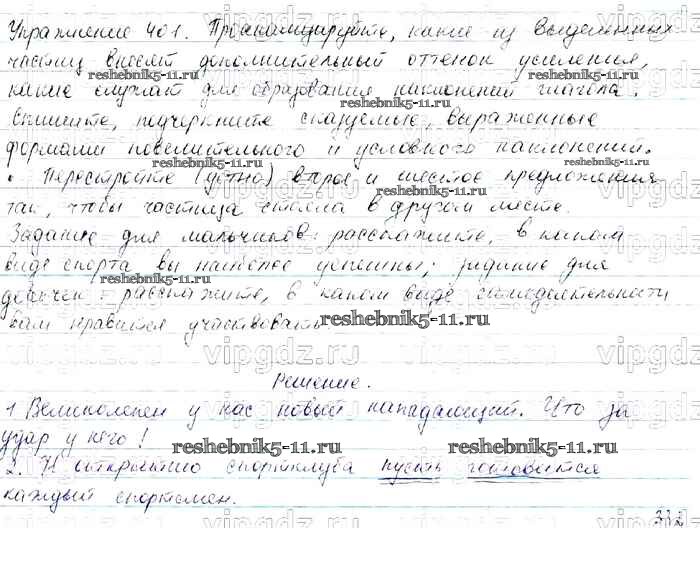 Упражнение 401. Проанализируйте, какие из выделенных
частиц вносят дополнительный оттенок усиления,
какие служат для образования наклонений глагола.
Спишите, подчеркните сказуемые, выраженные
формами повелительного и условного наклонений.
• Перестройте (устно) второе и шестое предложения
так, чтобы частица стояла в другом месте.
Задание для мальчиков: расскажите, в каком
виде спорта вы наиболее успешны; задание для
девочек - расскажите, в каком виде самодеятельности
вам нравится участвовать
Решение.
1 Великолепен у нас новый нападающий. Что за
удар у него!
2. К открытию спортклуба пусть готовится
каждый спортсмен.
332
reshebnik5-11.ru
vipgdz.ru